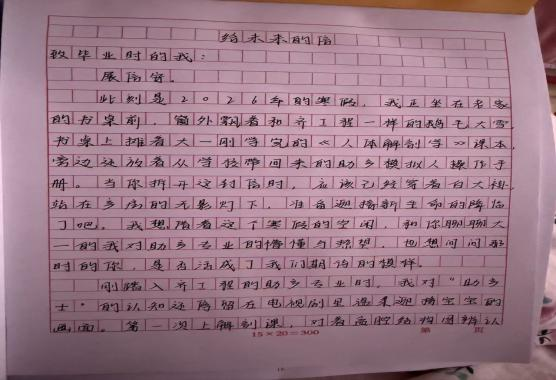 给未来的信
致毕业时的我：
展信安。
此刻是2026年的寒假，我正坐在老家
的书桌前，窗外飘着和齐工程一样的鹅毛大雪，
书桌上摊着大一刚学完的《人体解剖学》课本，
旁边还放着从学校带回来的助产模拟人操作手
册。当你拆开这封信时，应该已经穿着白大褂，
站在产房的无影灯下，准备迎接新生命的降临
了吧。我想借着这个寒假的空闲，和你聊聊大
一的我对助产专业的懵懂与期望，也想问问那
时的你，是否活成了我们期待的模样。
刚踏入齐工程的助产专业时，我对“助产
士”的认知还停留在电视剧里迎来迎接宝宝的
画面。第一次上解剖课，对着盆腔结构图辨认
15×20=300
第 页